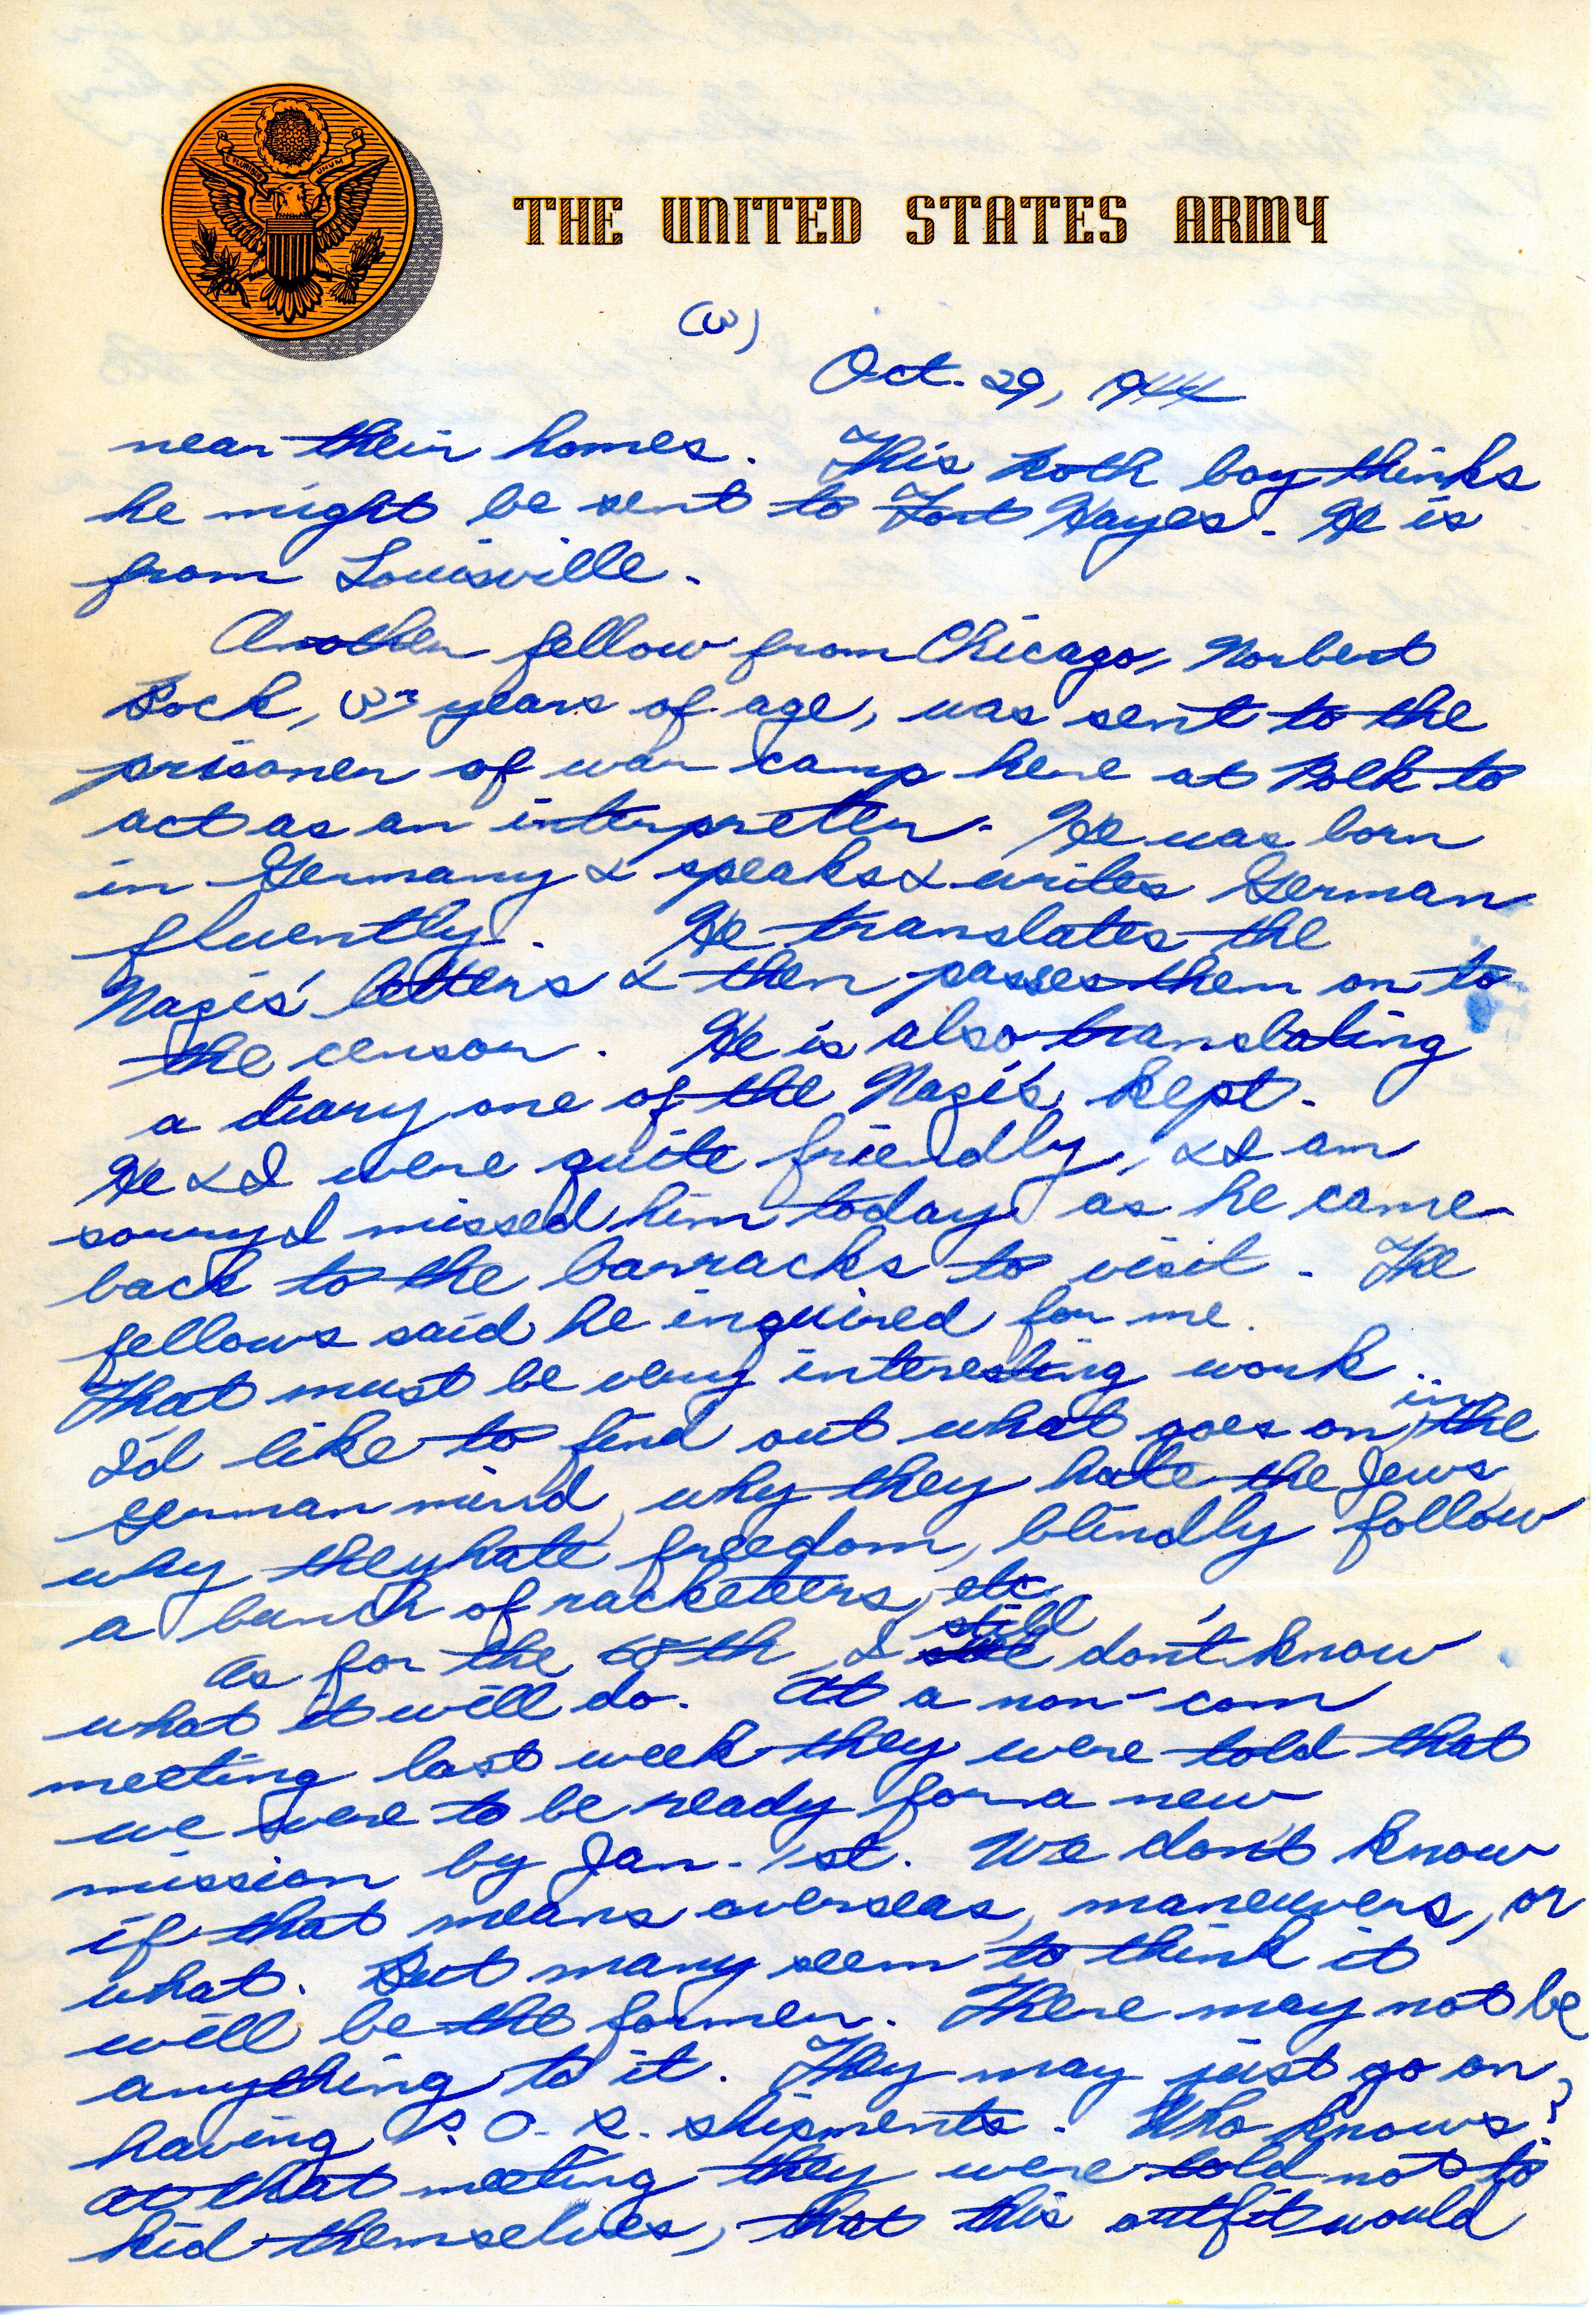 E PLURIBUS UNUM
THE UNITED STATES ARMY
(3)
Oct. 29, 1944
near their homes. This Roth boy thinks
he might be sent to Fort Hayes. He is
from Louisville.
Another fellow from Chicago, Norbert
Bock, years of age, was sent to the
prisoner of war camp here at Polk to
act as an interpretter. He was born
in Germany & speaks & writes German
fluently. He translates the
Nazis' letters & then passes them on to
the censor. He is also translating
a diary one of the Nazis kept.
He & I were quite friendly, & I am
sorry I missed him today as he came
back to the barracks to visit. The
fellows said he inquired for me.
That must be very interesting work
I'd like to find out what goes on in the
German mind, why they hate the Jews,
why they hate freedom, blindly follow
a bunch of racketeers, etc.
As for the 68th, I still don't know
what it will do. At a non-com
meeting last week they were told that
we were to be ready for a new
mission by Jan. 1st. We don't know
if that means overseas, maneuvers, or
what. But many seem to think it
will be the former. There may not be
anything to it. They may just go on
having P.O.R. shipments. Who knows?
At that meeting they were told not to
kid themselves, that this outfit would